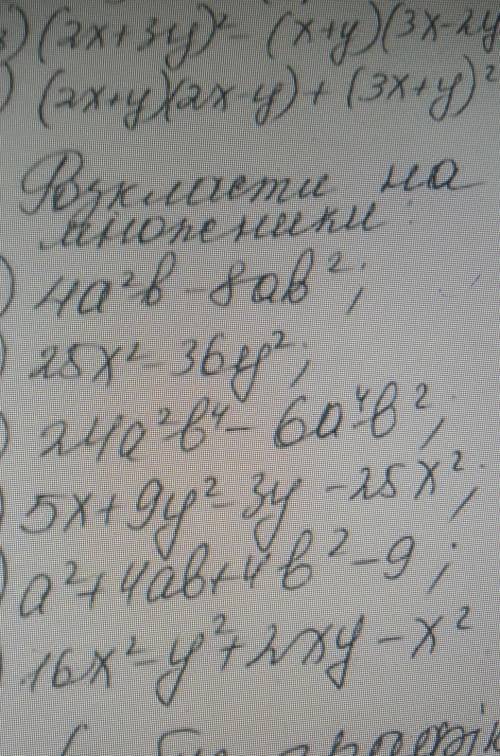 ) (2x+3y)² - (x+y)(3x-2y
) (2x+y)(2x-y) + (3x+y)²
Розкласти на
множники:
) 4a²b - 8ab²;
) 25x² - 36y²;
) 24a²b⁴ - 6a⁴b²;
) 5x + 9y² - 3y - 25x²;
) a² + 4ab + 4b² - 9;
) 16x² - y² + 2xy - x²